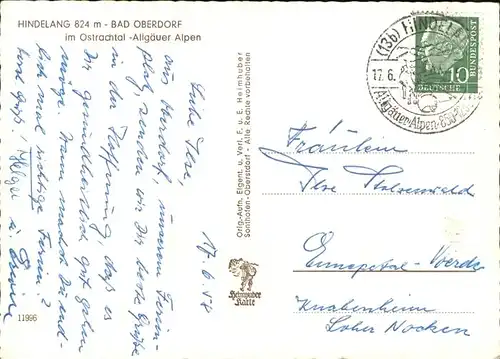 HINDELANG 824 m - BAD OBERDORF
im Ostrachtal - Allgäuer Alpen
Liebe Ilse,
aus Oberdorf, unserem Ferien-
platz, senden wir Dir beste Grüße
in der Hoffnung, daß es
Dir gesundheitlich gut gehen
möge. Wann machst Du end-
lich mal richtige Ferien?
Helga u. Erwin
17.6.58
11996
Orig.-Aufn. Eigent. u. Verl. F. u. E. Heimhuber
Sonthofen-Oberstdorf - Alle Rechte vorbehalten
Heimhuber
Karte
(13b) HINDEL
17.6.
Allgäuer Alpen 850
10
DEUTSCHE
BUNDESPOST
Fräulein
Ilse
Ennepetal-Voerde
Knabenheim
Loher Nocken